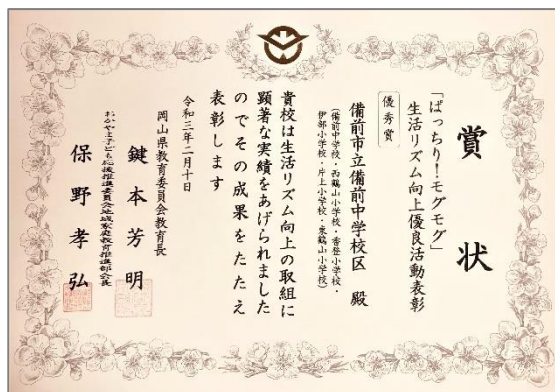 賞状
「ぱっちり!モグモグ」
生活リズム向上優良活動表彰
優秀賞
備前市立備前中学校区 殿
(備前中学校・西鶴山小学校・香登小学校・
伊部小学校・片上小学校・東鶴山小学校)
貴校は生活リズム向上の取組に
顕著な実績をあげられました
のでその成果をたたえ
表彰します
令和三年二月十日
岡山県教育委員会教育長
鍵本芳明
おかやま子ども応援推進委員会地域家庭教育推進部会長
保野孝弘